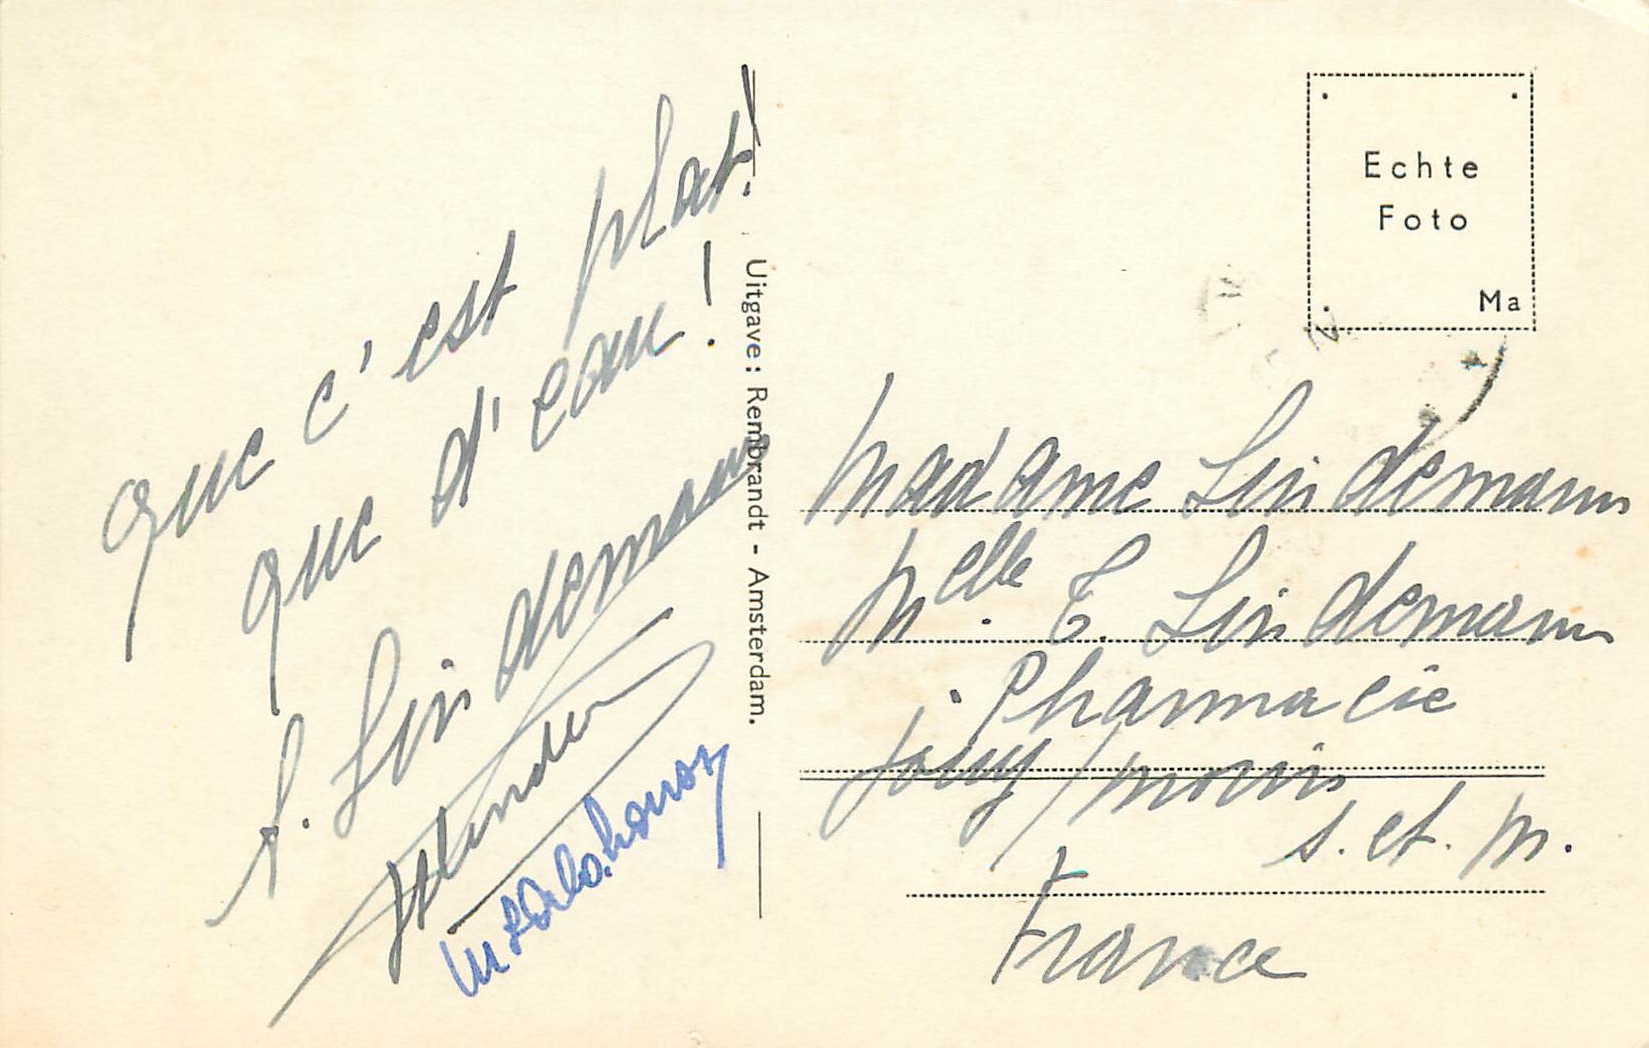 que c'est plat!
que d'eau!
S. Lindemann
Uitgave: Rembrandt - Amsterdam.
Echte
Foto
Ma
Madame Lindemann
Melle. E. Lindemann
Pharmacie
Jouy / morin
S. et. M.
France